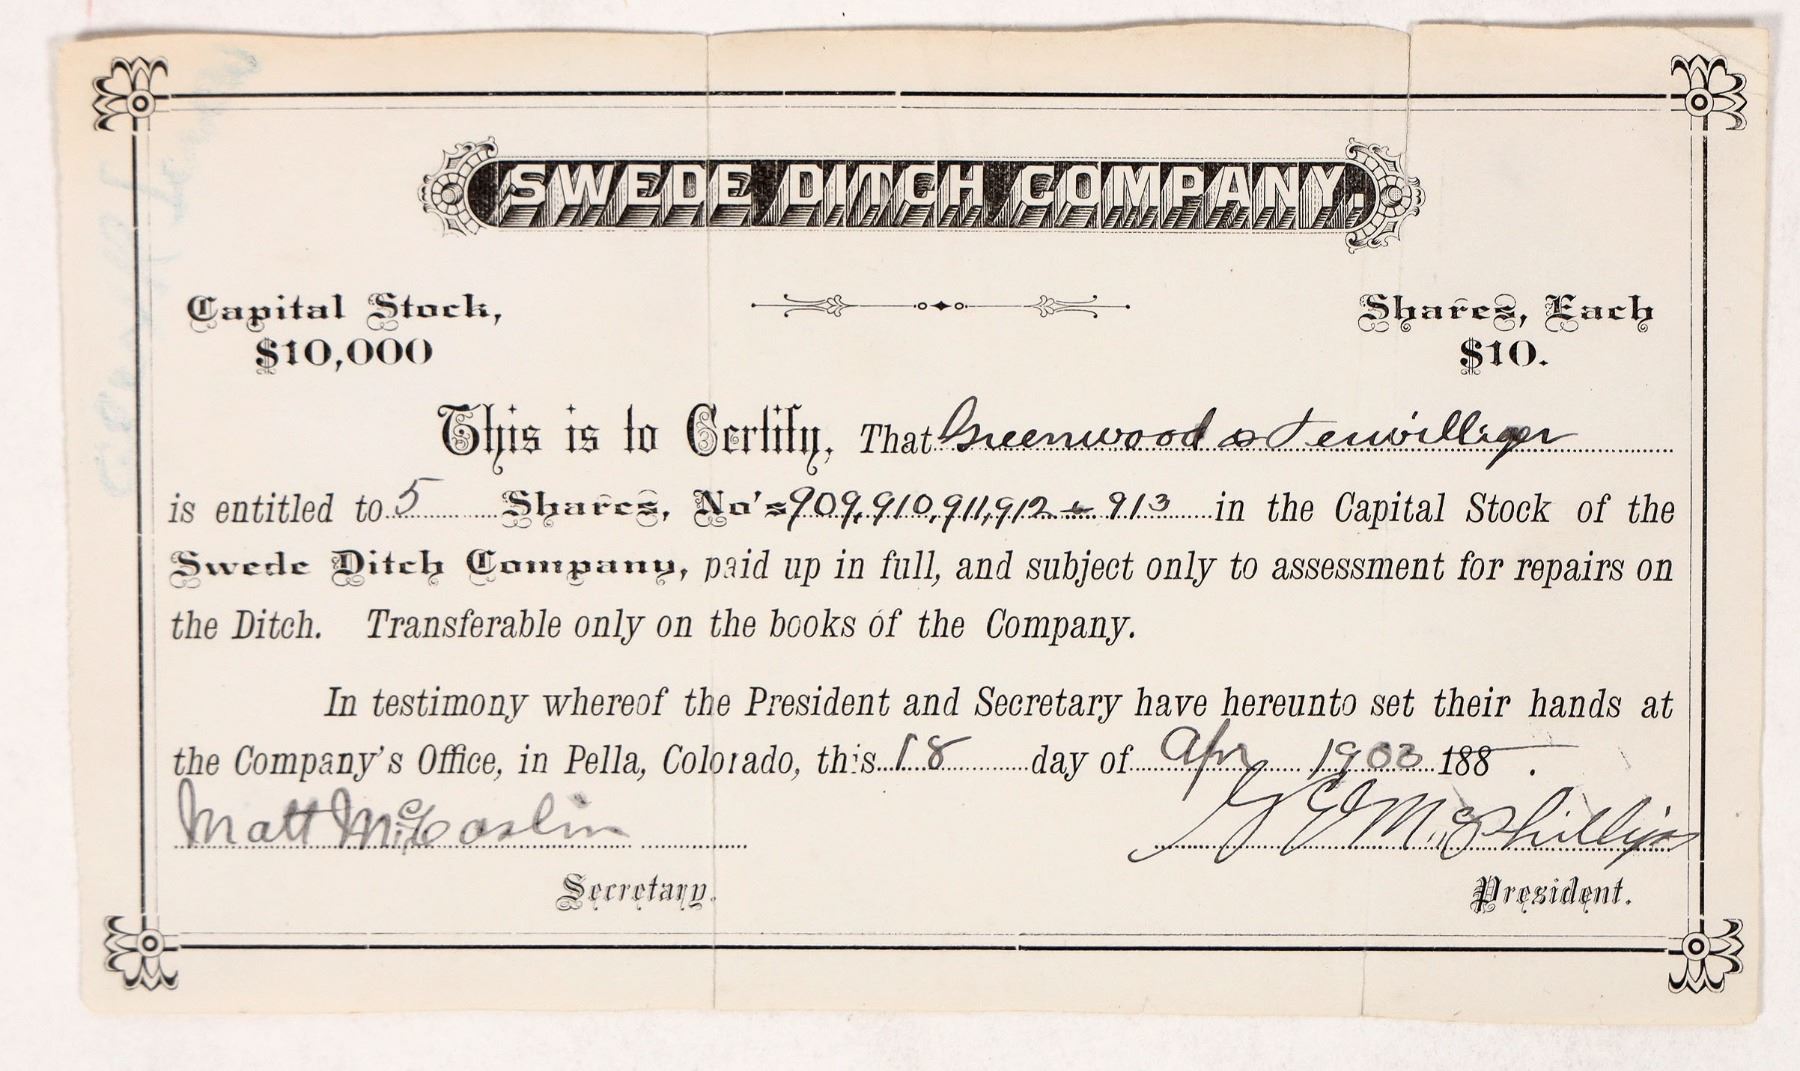 SWEDE DITCH COMPANY.
Capital Stock,
$10,000
Shares, Each
$10.
This is to Certify, That Greenwood & Terwilliger
is entitled to 5 Shares, No's 909, 910, 911, 912 & 913 in the Capital Stock of the
Swede Ditch Company, paid up in full, and subject only to assessment for repairs on
the Ditch. Transferable only on the books of the Company.
In testimony whereof the President and Secretary have hereunto set their hands at
the Company's Office, in Pella, Colorado, this 18 day of Apr 1903 188 .
Matt McCaslin
McPhillips
Secretary.
President.